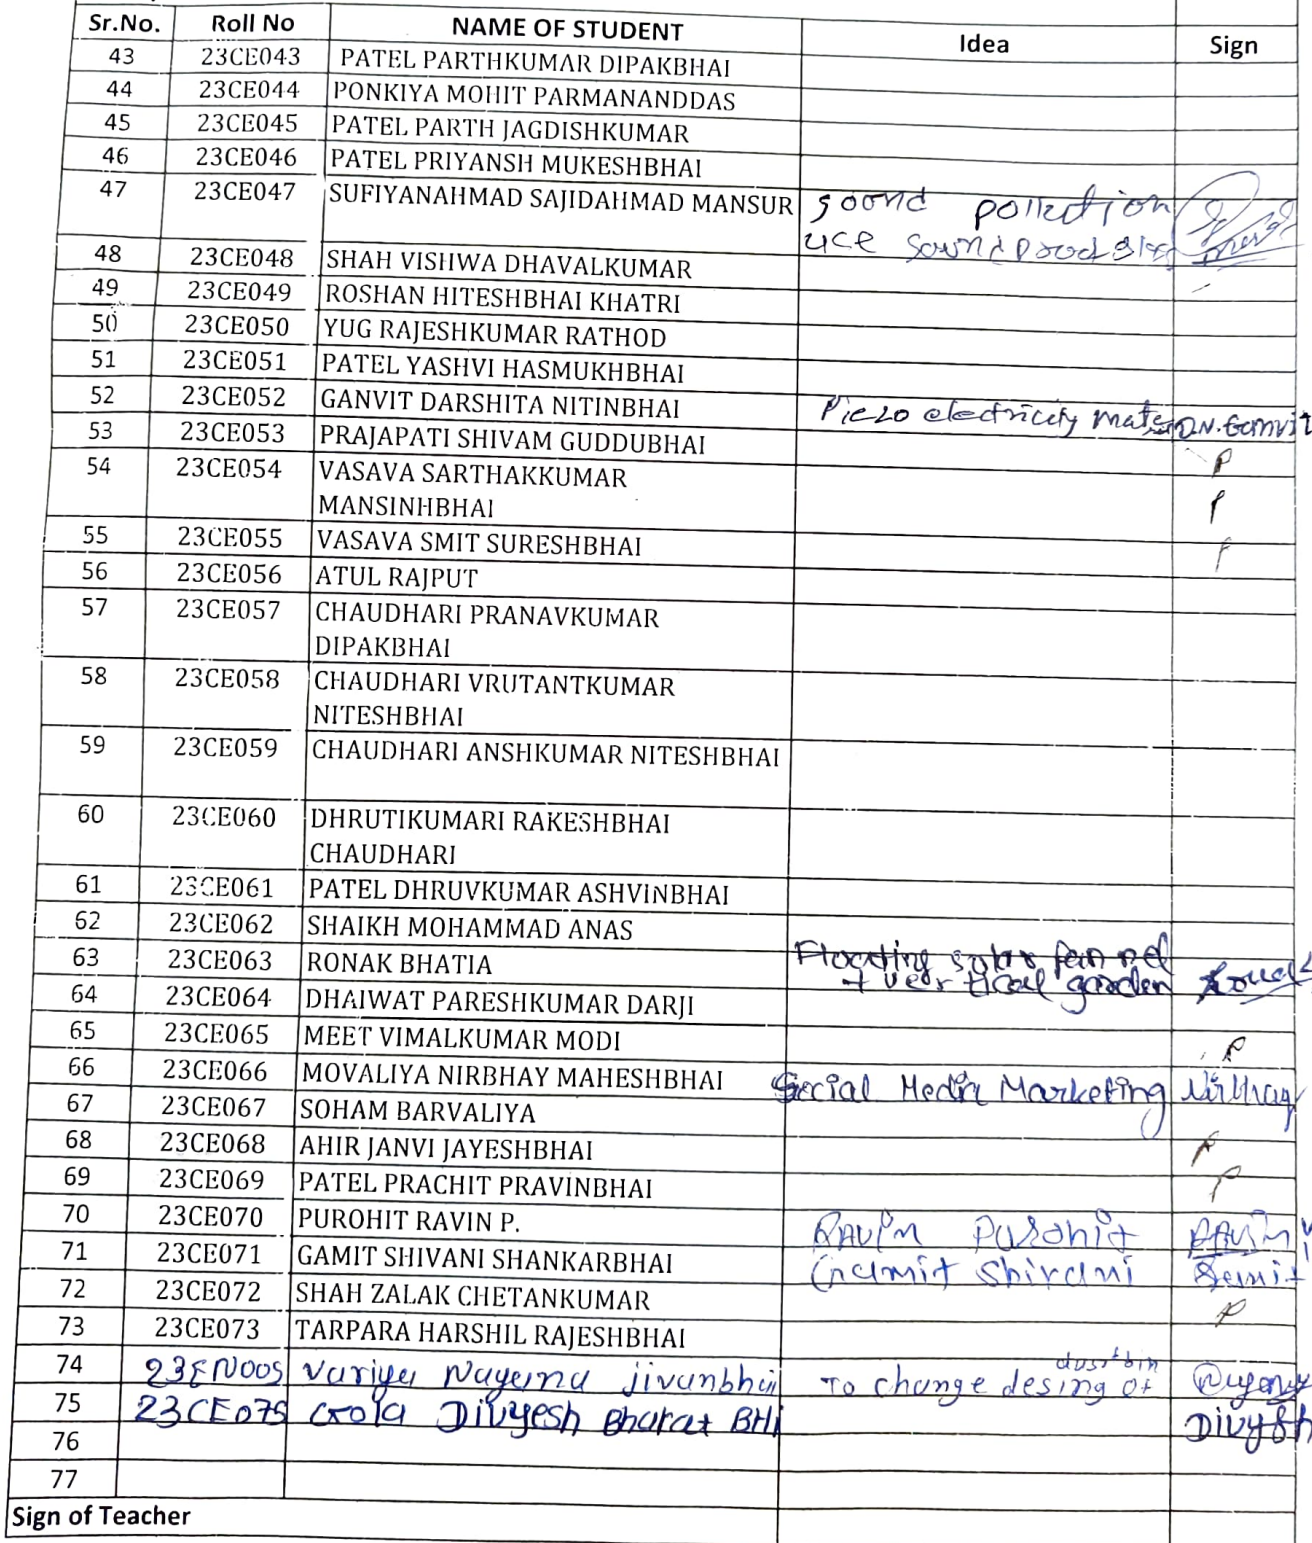 Sr.No. Roll No NAME OF STUDENT Idea Sign
43 23CE043 PATEL PARTHKUMAR DIPAKBHAI
44 23CE044 PONKIYA MOHIT PARMANANDDAS
45 23CE045 PATEL PARTH JAGDISHKUMAR
46 23CE046 PATEL PRIYANSH MUKESHBHAI
47 23CE047 SUFIYANAHMAD SAJIDAHMAD MANSUR soond pollution
uce
48 23CE048 SHAH VISHWA DHAVALKUMAR
49 23CE049 ROSHAN HITESHBHAI KHATRI
50 23CE050 YUG RAJESHKUMAR RATHOD
51 23CE051 PATEL YASHVI HASMUKHBHAI
52 23CE052 GANVIT DARSHITA NITINBHAI Piezo electricity D.N.Gamvit
53 23CE053 PRAJAPATI SHIVAM GUDDUBHAI P
54 23CE054 VASAVA SARTHAKKUMAR P
MANSINHBHAI
55 23CE055 VASAVA SMIT SURESHBHAI
56 23CE056 ATUL RAJPUT
57 23CE057 CHAUDHARI PRANAVKUMAR
DIPAKBHAI
58 23CE058 CHAUDHARI VRUTANTKUMAR
NITESHBHAI
59 23CE059 CHAUDHARI ANSHKUMAR NITESHBHAI
60 23CE060 DHRUTIKUMARI RAKESHBHAI
CHAUDHARI
61 23CE061 PATEL DHRUVKUMAR ASHVINBHAI
62 23CE062 SHAIKH MOHAMMAD ANAS
63 23CE063 RONAK BHATIA Floating solar
+ vertical garden
64 23CE064 DHAIWAT PARESHKUMAR DARJI
65 23CE065 MEET VIMALKUMAR MODI P
66 23CE066 MOVALIYA NIRBHAY MAHESHBHAI Social Media Marketing Nirbhay
67 23CE067 SOHAM BARVALIYA
68 23CE068 AHIR JANVI JAYESHBHAI
69 23CE069 PATEL PRACHIT PRAVINBHAI P
70 23CE070 PUROHIT RAVIN P. RAVIN Purohit RAVIN
71 23CE071 GAMIT SHIVANI SHANKARBHAI Gamit Shivani Gamit
72 23CE072 SHAH ZALAK CHETANKUMAR P
73 23CE073 TARPARA HARSHIL RAJESHBHAI
dustbin
74 23EN005 Variya Nayana jivanbhai To change desing of
75 23CE075 Gola Divyesh Bharat BHI Divyesh
76
77
Sign of Teacher